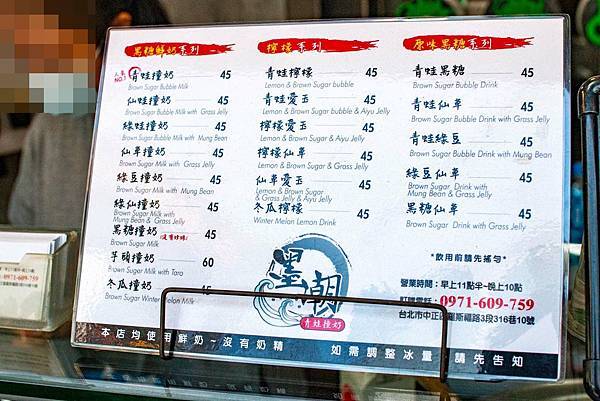 黑糖鮮奶系列
人氣
NO.1
青蛙撞奶 45
Brown Sugar Bubble Milk
仙蛙撞奶 45
Brown Sugar Bubble Milk with Grass Jelly
綠蛙撞奶 45
Brown Sugar Bubble Milk with Mung Bean
仙草撞奶 45
Brown Sugar Milk with Grass Jelly
綠豆撞奶 45
Brown Sugar Milk with Mung Bean
綠仙撞奶 45
Brown Sugar Milk with
Mung Bean & Grass Jelly
黑糖撞奶(沒有珍珠) 45
Brown Sugar Milk
芋頭撞奶 60
Brown Sugar Milk with Taro
冬瓜撞奶 45
Brown Sugar Winter Melon Milk
檸檬系列
青蛙檸檬 45
Lemon & Brown Sugar bubble
青蛙愛玉 45
Lemon & Brown Sugar bubble & Aiyu Jelly
檸檬愛玉 45
Lemon & Brown Sugar & Aiyu Jelly
檸檬仙草 45
Lemon & Brown Sugar & Grass Jelly
仙草愛玉 45
Lemon & Brown Sugar
& Grass Jelly & Aiyu Jelly
冬瓜檸檬 45
Winter Melon Lemon Drink
墨潮
青蛙撞奶
原味黑糖系列
青蛙黑糖 45
Brown Sugar Bubble Drink
青蛙仙草 45
Brown Sugar Bubble Drink with Grass Jelly
青蛙綠豆 45
Brown Sugar Bubble Drink with Mung Bean
綠豆仙草 45
Brown Sugar Drink with
Mung Bean & Grass Jelly
黑糖仙草 45
Brown Sugar Drink with Grass Jelly
*飲用前請先搖勻*
營業時間：早上11點半~晚上10點
訂購電話：0971-609-759
台北市中正區羅斯福路3段316巷10號
本店均使用鮮奶~沒有奶精 如需調整冰量，請先告知
0971-609-759